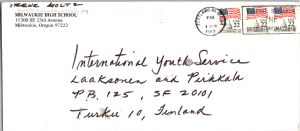 IRENE HOLTZ
MILWAUKIE HIGH SCHOOL
11300 SE 23rd Avenue
Milwaukie, Oregon 97222
PM
22
22
22
International Youth Service
Laaksonen and Pirkkala
P.B. 125, SF 20101
Turku 10, Finland